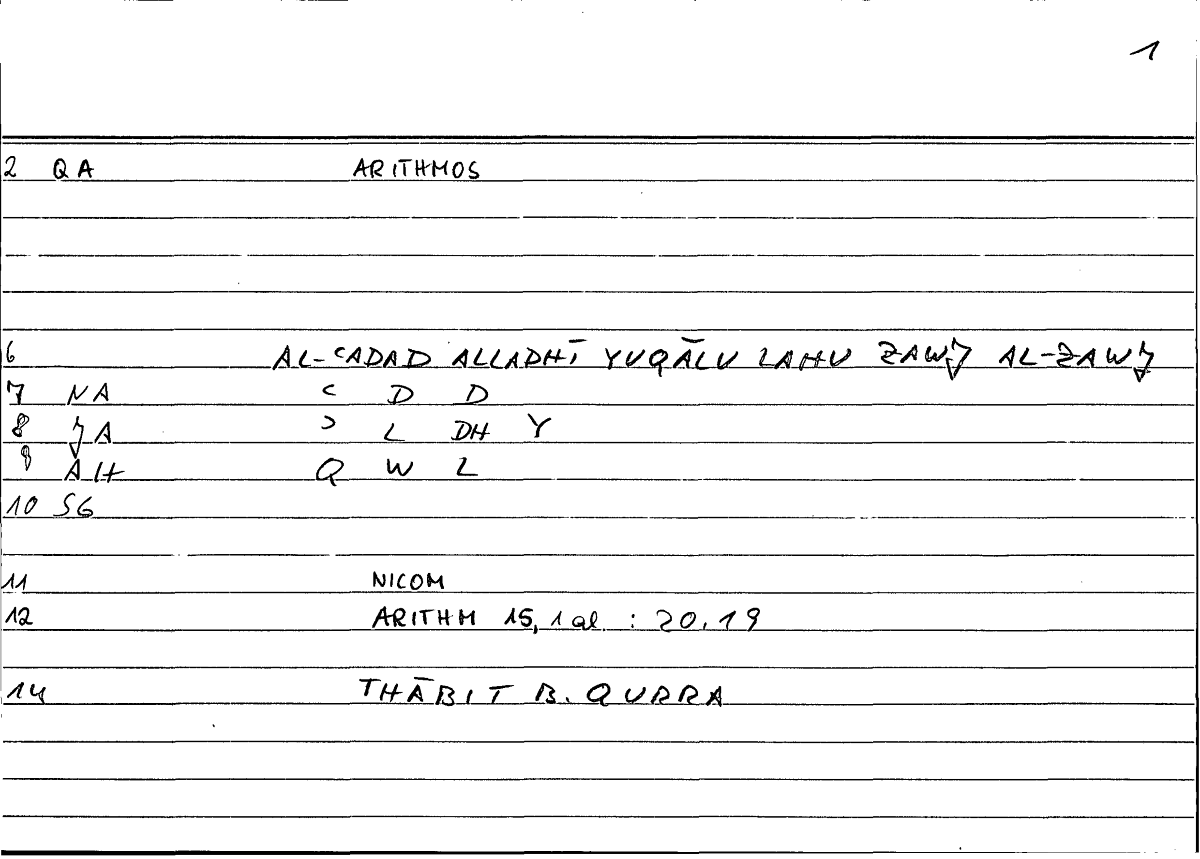 1
2 QA ARITHMOS
6 AL-ʿADAD ALLADHĪ YUQĀLU LAHU ZAWǰ AL-ZAWǰ
7 NA ʿ D D
8 ǰA ʾ L DH Y
9 AH Q W L
10 SG
11 NICOM
12 ARITHM 15, 1 al : 20.19
14 THĀBIT B. QURRA